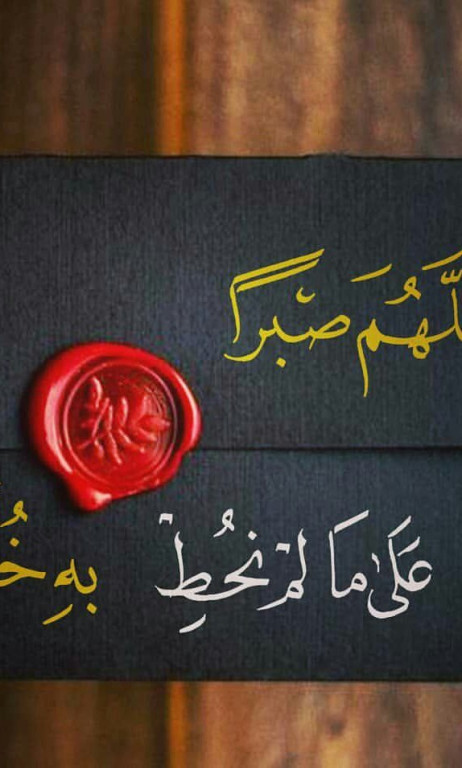 لَّهُمَ صَبراً
عَلَىٰ مَا لَمْ نُحْطِ بِهِ خُ